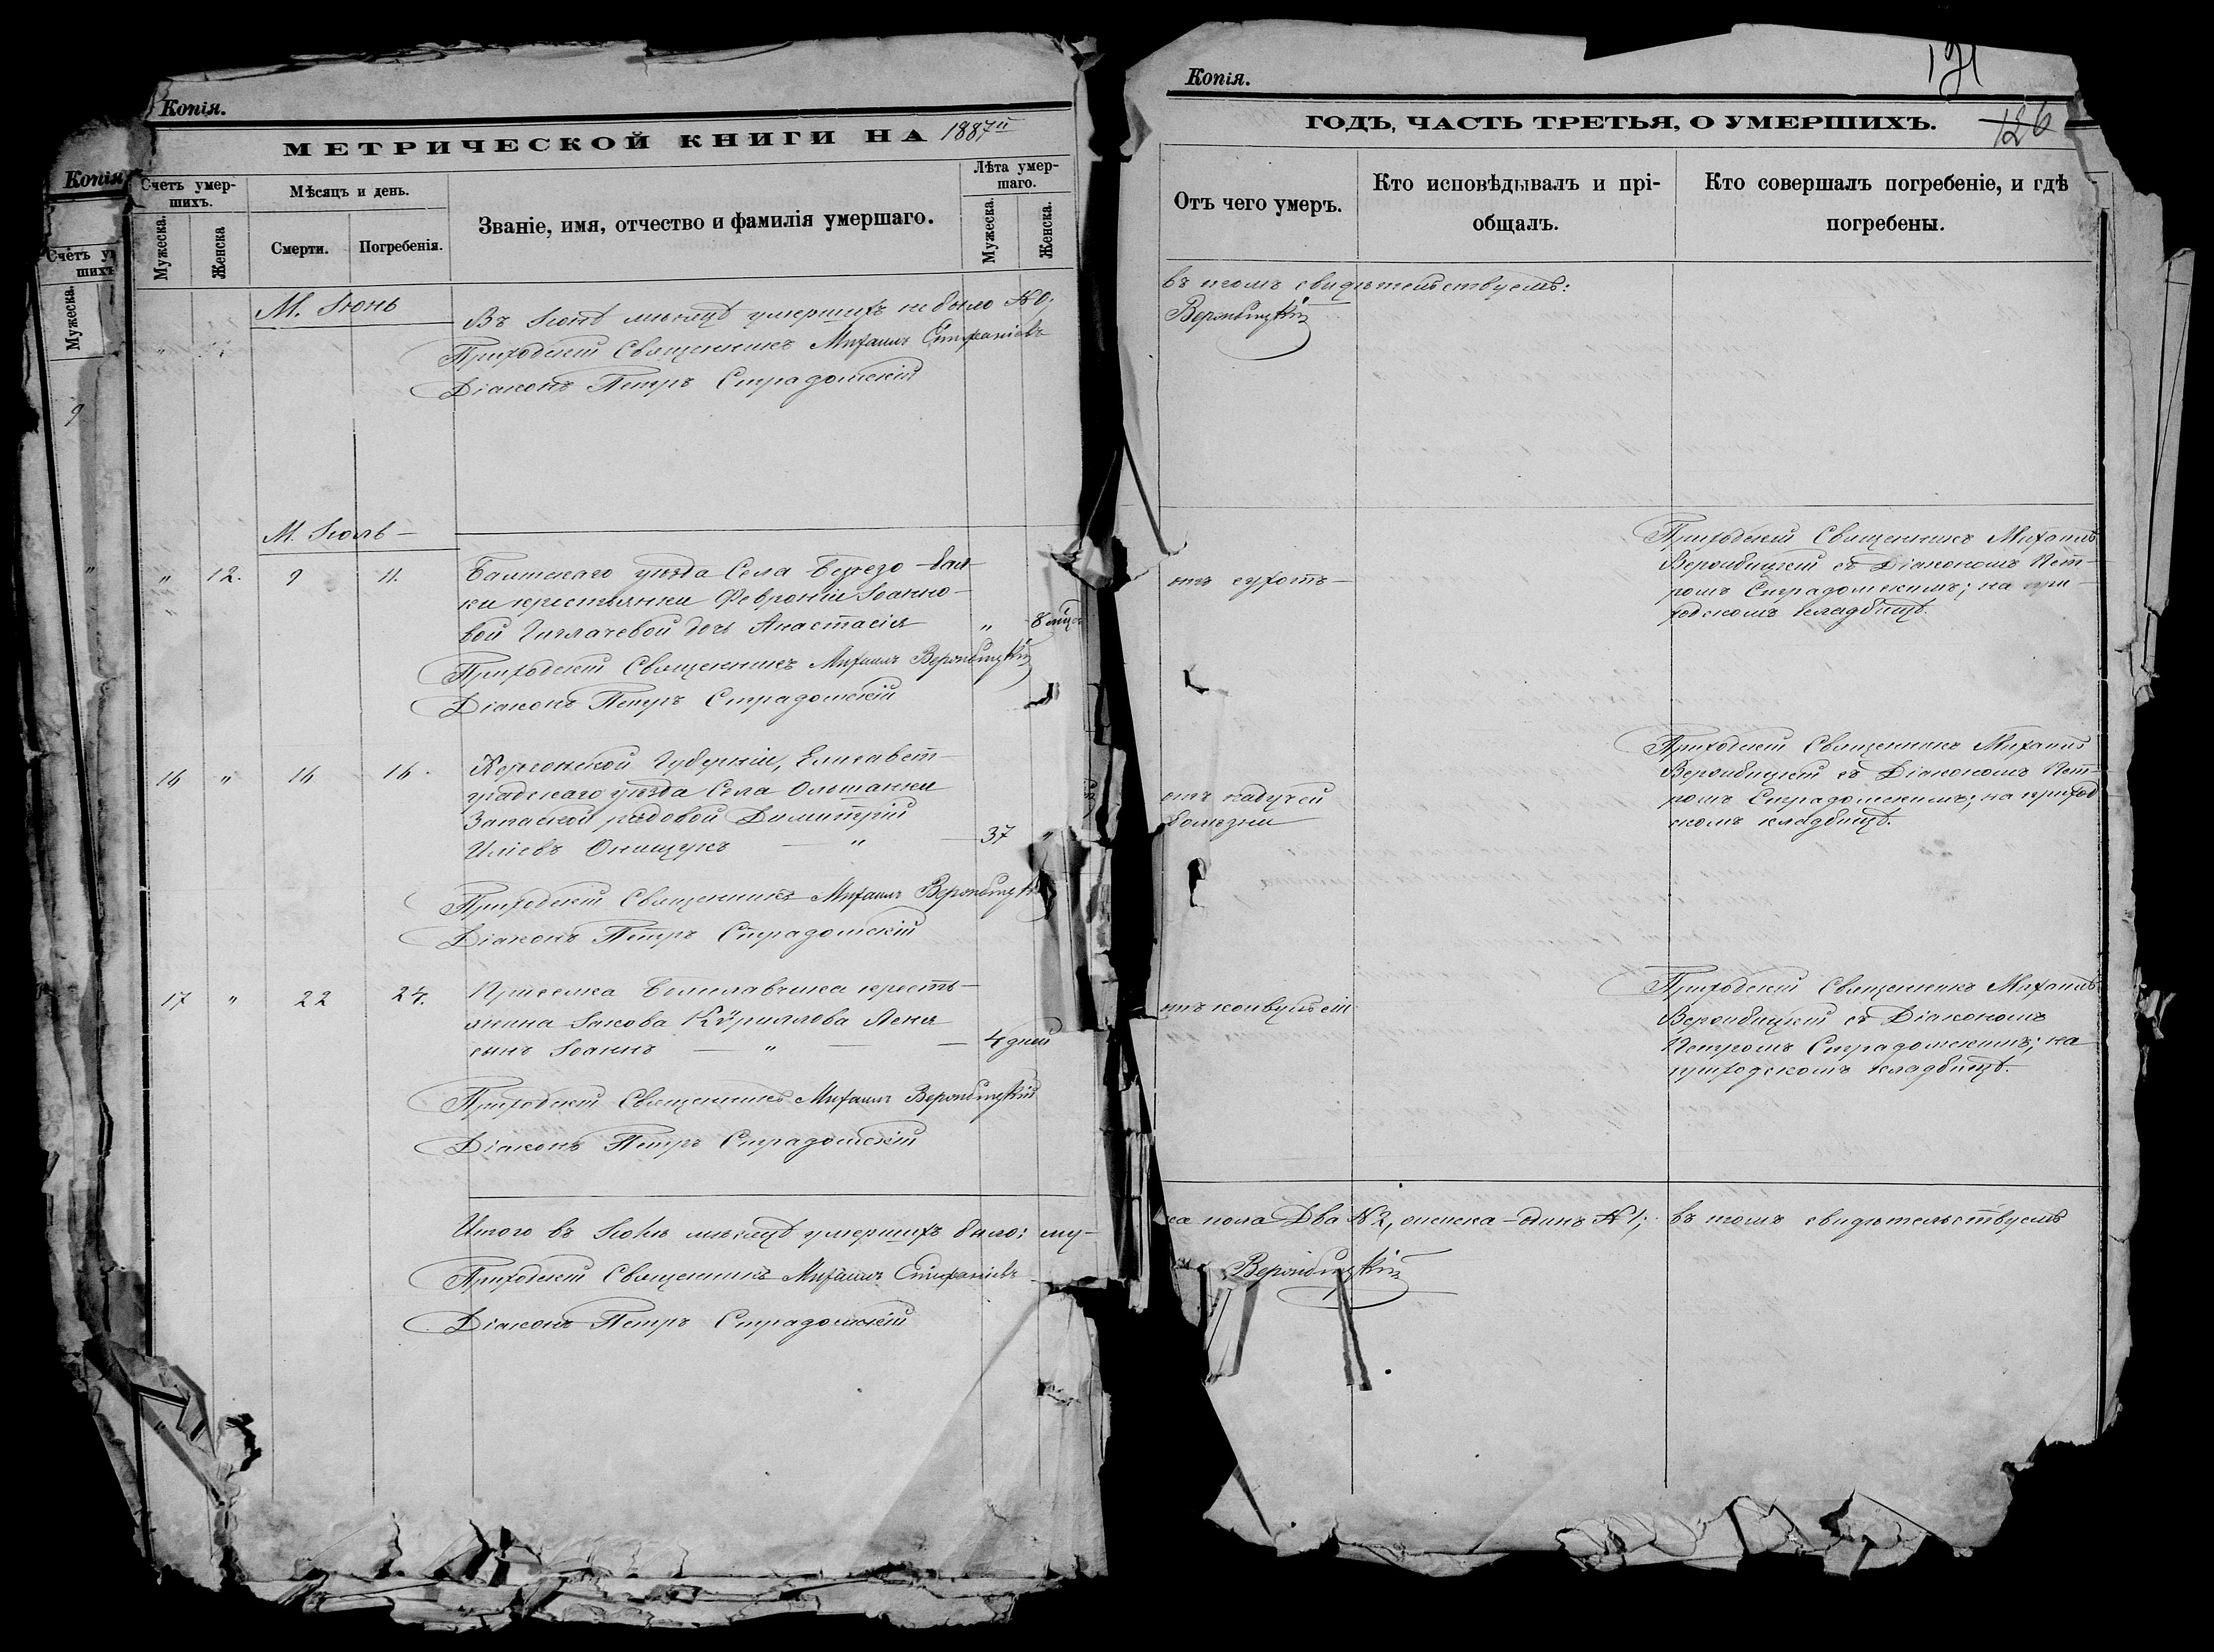 Копія.
МЕТРИЧЕСКОЙ КНИГИ НА 1887й
Счетъ умер-
шихъ.
Мѣсяцъ и день.
Званіе, имя, отчество и фамилія умершаго.
Лѣта умер-
шаго.
Мужеска.
Женска
Смерти.
Погребенія.
Мужеска.
Женска.
М. Іюнь
Въ Іюнѣ мѣсяцѣ умершихъ не было № 0;
Приходскій Священникъ Михаилъ Епифаніевъ
Діаконъ Петръ Страдомскій
М. Іюль
" 12. 9 11. Балтскаго уѣзда Села Березо-бал-
ки крестьянки Февроніи Іоанно-
вой дочь Анастасія " 8 мѣц.
Приходскій Священникъ Михаилъ Вероибицкій
Діаконъ Петръ Страдомскій
16 " 16 16. Херсонской Губерніи, Елисавет-
градскаго уѣзда Села Ольшанки
Запасной рядовой Димитрій
Иліевъ Онищукъ — " — 37 "
Приходскій Священникъ Михаилъ Вероибицкій
Діаконъ Петръ Страдомскій
17 " 22 24. Приселка Болеславчика кресть-
янина Іакова Кѵриллова
сынъ Іоаннъ — " — 4 дней
Приходскій Священникъ Михаилъ Вероибицкій
Діаконъ Петръ Страдомскій
Итого въ Іюлѣ мѣсяцѣ умершихъ было: му-
Приходскій Священникъ Михаилъ Епифаніевъ
Діаконъ Петръ Страдомскій
Копія.
Счетъ у
шихъ
Мужеска.
9
Копія.
121
126
ГОДЪ, ЧАСТЬ ТРЕТЬЯ, О УМЕРШИХЪ.
Отъ чего умеръ.
Кто исповѣдывалъ и прі-
общалъ.
Кто совершалъ погребеніе, и гдѣ
погребены.
въ томъ свидѣтельствуемъ:
Вероибицкій
отъ сухотъ
Приходскій Священникъ Михаилъ
Вероибицкій съ Діакономъ Пет-
ромъ Страдомскимъ; на при-
ходскомъ кладбищѣ.
отъ падучей
болѣзни
Приходскій Священникъ Михаилъ
Вероибицкій съ Діакономъ Пет-
ромъ Страдомскимъ; на приход
скомъ кладбищѣ.
отъ конвульсіи
Приходскій Священникъ Михаилъ
Вероибицкій съ Діакономъ
Петромъ Страдомскимъ; на
приходскомъ кладбищѣ.
ска пола Два № 2, женска – одинъ № 1; въ томъ свидѣтельствуемъ
Вероибицкій